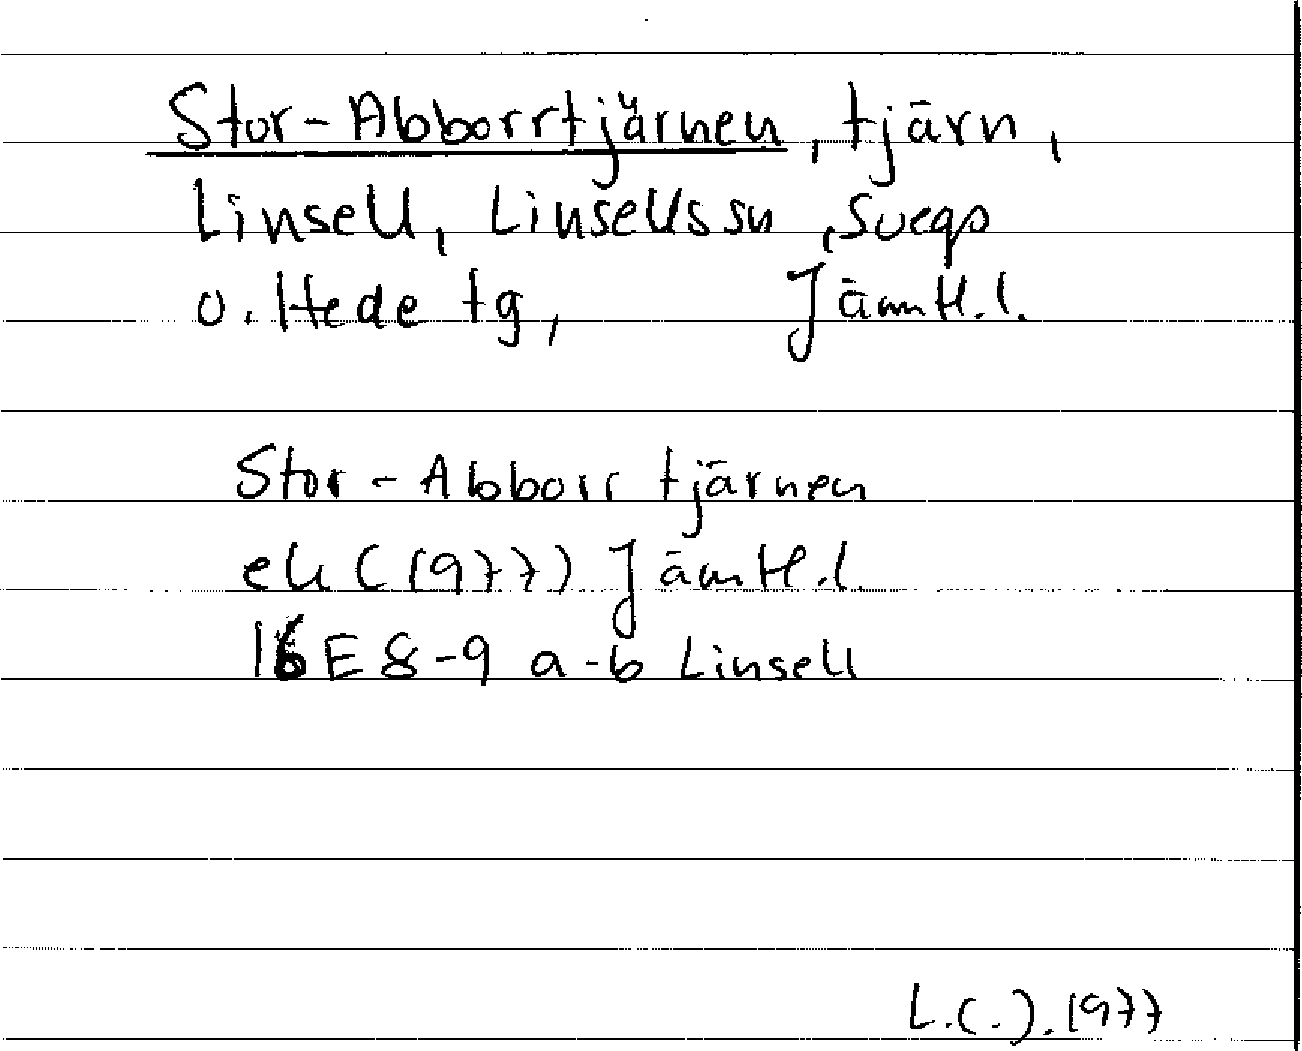 Stor-Abborrtjärnen, tjärn,
Linsell, Linsells sn, Svegs
o. Hede tg, Jämtl. l.
Stor-Abborrtjärnen
ek (1977) Jämtl. l.
16E 8-9 a-b Linsell
L.(.). 1977